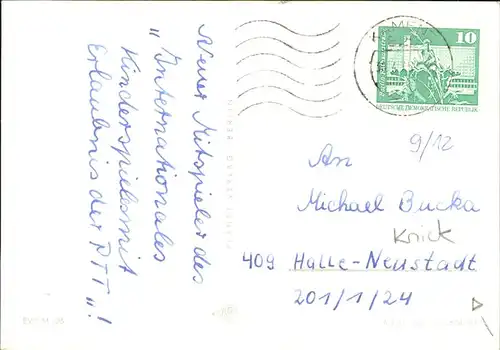 Neuer Mitspieler des
„Internationales
Kinderspielsmit
Erlaubnis der PTT"!
10
DEUTSCHE DEMOKRATISCHE REPUBLIK
9/12
An
Michael Bucka
Knick
409 Halle-Neustadt
201/1/24